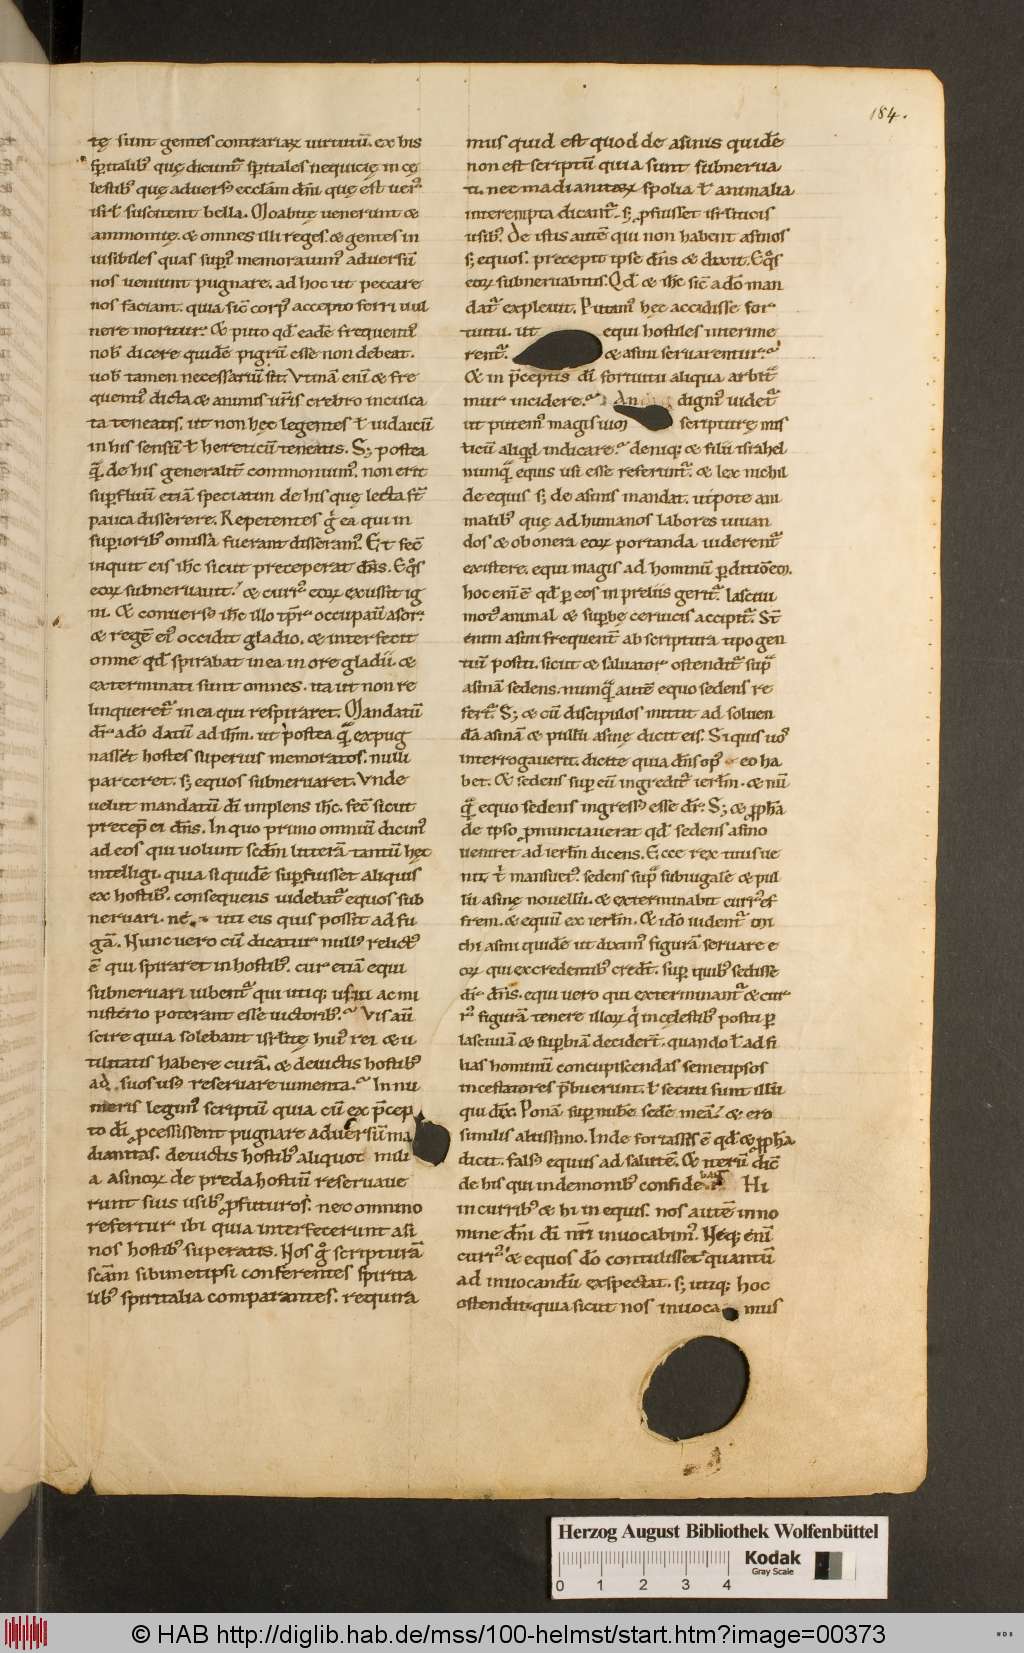 184.
tę sunt gentes contrariaꝝ uirtutū. ex his
sp̄ritalib; quę dicunt᷑ sp̄ritales nequicię in cę
lestib; quę aduers; eccl̄am dn̄i quę est uer᷒
isrl̄ suscitent bella. Moabitę uenerunt &
ammonitę. & omnes illi reges. & gentes in
uisibiles quas sup᷑i᷒ memorauim᷒ aduersū
nos ueniunt pugnare. ad hoc ut peccare
nos faciant. quia sic̄ corp᷒ accepto ferri uul
nere moritur.
nob̄ dicere quidē pigrū esse non debeat.
uob̄ tamen necessariū sit. Vtinā eni᷒ & fre
quenti᷒ dicta & animis ur̄is crebro inculca
ta teneatis. ut non hęc legentes l̄ iudaicū
in his sensū l̄ hereticū teneatis. S; postea
q̄ de his generalit̄ commonuim᷒. non erit
sup̄fluū etiā speciatim de his quę lecta st̄
pauca disserere. Repetentes g̊ ea qui in
sup̄ioribus omissa fuerant disseram᷒. Et fec̄
inquit eis ih̄c sicut preceperat dn̄s. Eq̊s
eoꝝ subneruauit. & curr᷒ eoꝝ exussit ig
ni. Et conuers; ih̄c illo tp̄r occupauit asor.
& regē ei᷒ occidit gladio. & interfecit
omne qd̄ spirabat in ea in ore gladii. &
exterminati sunt omnes. ita ut non re
linqueret᷑ in ea qui respiraret. Mandatū
dr̄ a dō datū ad ih̄m. ut postea q̄ expug
nasset hostes superius memoratos. nulli
parceret. s; equos subneruaret. Vnde
uelut mandatū dī implens ih̄c. fec̄ sicut
precep̄ ei dn̄s. In quo primo omniū dicim᷒
ad eos qui uolunt sedm̄ litterā tantū hęc
intelligi. quia si quidē sup̄fuisset aliquis
ex hostib;. consequens uidebat᷑ equos sub
neruari. ne uti eis quis possit ad fu
gā. Nunc uero cū dicatur null᷒ relict᷒
ē qui spiraret in hostib;. cur etiā equi
subneruari iubent᷑ qui utiq; usui ac mi
nisterio poterant esse uictorib;. Vis aū
scire quia solebant isrl̄itę hui᷒ rei & u
tilitatis habere curā. & deuictis hostib;
ad suos us; reseruare iumenta. In nu
meris legim᷒ scriptū quia cū ex p̄cep
to dī processissent pugnare aduersū ma
dianitas. deuictis hostib; aliquot mili
a. asinoꝝ de preda hostiū reseruaue
runt suis usib; profuturos. nec omnino
refertur ibi quia interfecerunt asi
nos hostib; superatis. Nos g̊ scripturā
scām sibimetipsi conferentes spirita
lib; spiritalia comparantes. requira
mus quid est quod de asinis quidē
non est scriptū quia sunt subnerua
ti. nec madianitaꝝ spolia l̄ animalia
interempta dicant᷑. s; profuisset isrl̄iticis
usib;. De istis autē qui non habent asinos
s; equos. precepit ipse dn̄s & dixit. Eq̊s
eoꝝ subneruabitis. Qd̄ & ih̄c sic̄ a dō man
dat᷑ expleuit. Putam᷒ hęc accidisse for
tuitu. ut equi hostiles interime
rent᷑. & asini seruarentur.
Et in p̄ceptis dī fortuitu aliqua arbit᷑
mur incidere. An digni᷒ uidet᷑
ut putem᷒ magis scripturę mis
ticū aliqd̄ indicare. deniq; & filii israhel
nunq̄ equis usi esse referunt᷑. & lex nichil
de equis s; de asinis mandat. utpote ani
malib; quę ad humanos labores iuuan
dos & ob onera eoꝝ portanda uiderent᷑
existere. equi magis ad hominū p̄ditionem.
hoc eni᷒ ē qd̄ p̄ eos in preliis gerit᷑. lasciui
mot᷒ animal & superbę ceruicis accipit᷑. St̄
enim asini frequent̄ ab scriptura tipo gen
tiū positi. sicut & saluator ostendit᷑ sup̄
asinā sedens. nunq̄ autē equo sedens re
fert᷑. S; & cū discipulos mittit ad soluen
dā asinā & pullū asinę dicit eis. Si quis uo᷒
interrogauerit. dicite quia dn̄s op᷒ eo ha
bet. Et sedens sup̄ eū ingredit᷑ ierl̄m. & nū
q̄ equo sedens ingress; esse dr̄. S; & pph̄a
de ipso pronunciauerat qd̄ sedens asino
ueniret ad ierl̄m dicens. Ecce rex tuus ue
nit t̄ mansuet᷒. sedens sup̄ subiugale & pul
lū asinę nouellū. & exterminabit curr᷒ ef
frem. & equū ex ierl̄m. Et ideo uident᷑ m̄
chi asini quidē ut dixim᷒ figurā seruare e
oꝝ qui ex credentib; credīt. sup̄ quib; sedisse
dr̄ dn̄s. equi uero qui exterminant᷑ & cur
r᷒ figurā tenere illoꝝ q̄ in cęlestib; positi p̄
lasciuiā & sup̄biā deciderīt. quando l̄ ad fi
lias hominū concupiscendas semetipsos
incestatores p̄buerunt. l̄ secuti sunt illū
qui dix̄. Ponā sup̄ nubē sedē meā. & ero
similis altissimo. Inde fortassis ē qd̄ & pph̄a
dicit. fals; equus ad salutē. Et iterū dic̄
de his qui in demonib; confide bāt Hi
in currib; & hi in equis. nos autē in no
mine dn̄i dī nr̄i inuocabim᷒. Neq; eni᷒
curr᷒ & equos dō contulisset quantū
ad inuocandū exspectat. s; utiq; hoc
ostendit quia sicut nos inuoca mus
Herzog August Bibliothek Wolfenbüttel
Kodak
Gray Scale
0 1 2 3 4
© HAB http://diglib.hab.de/mss/100-helmst/start.htm?image=00373